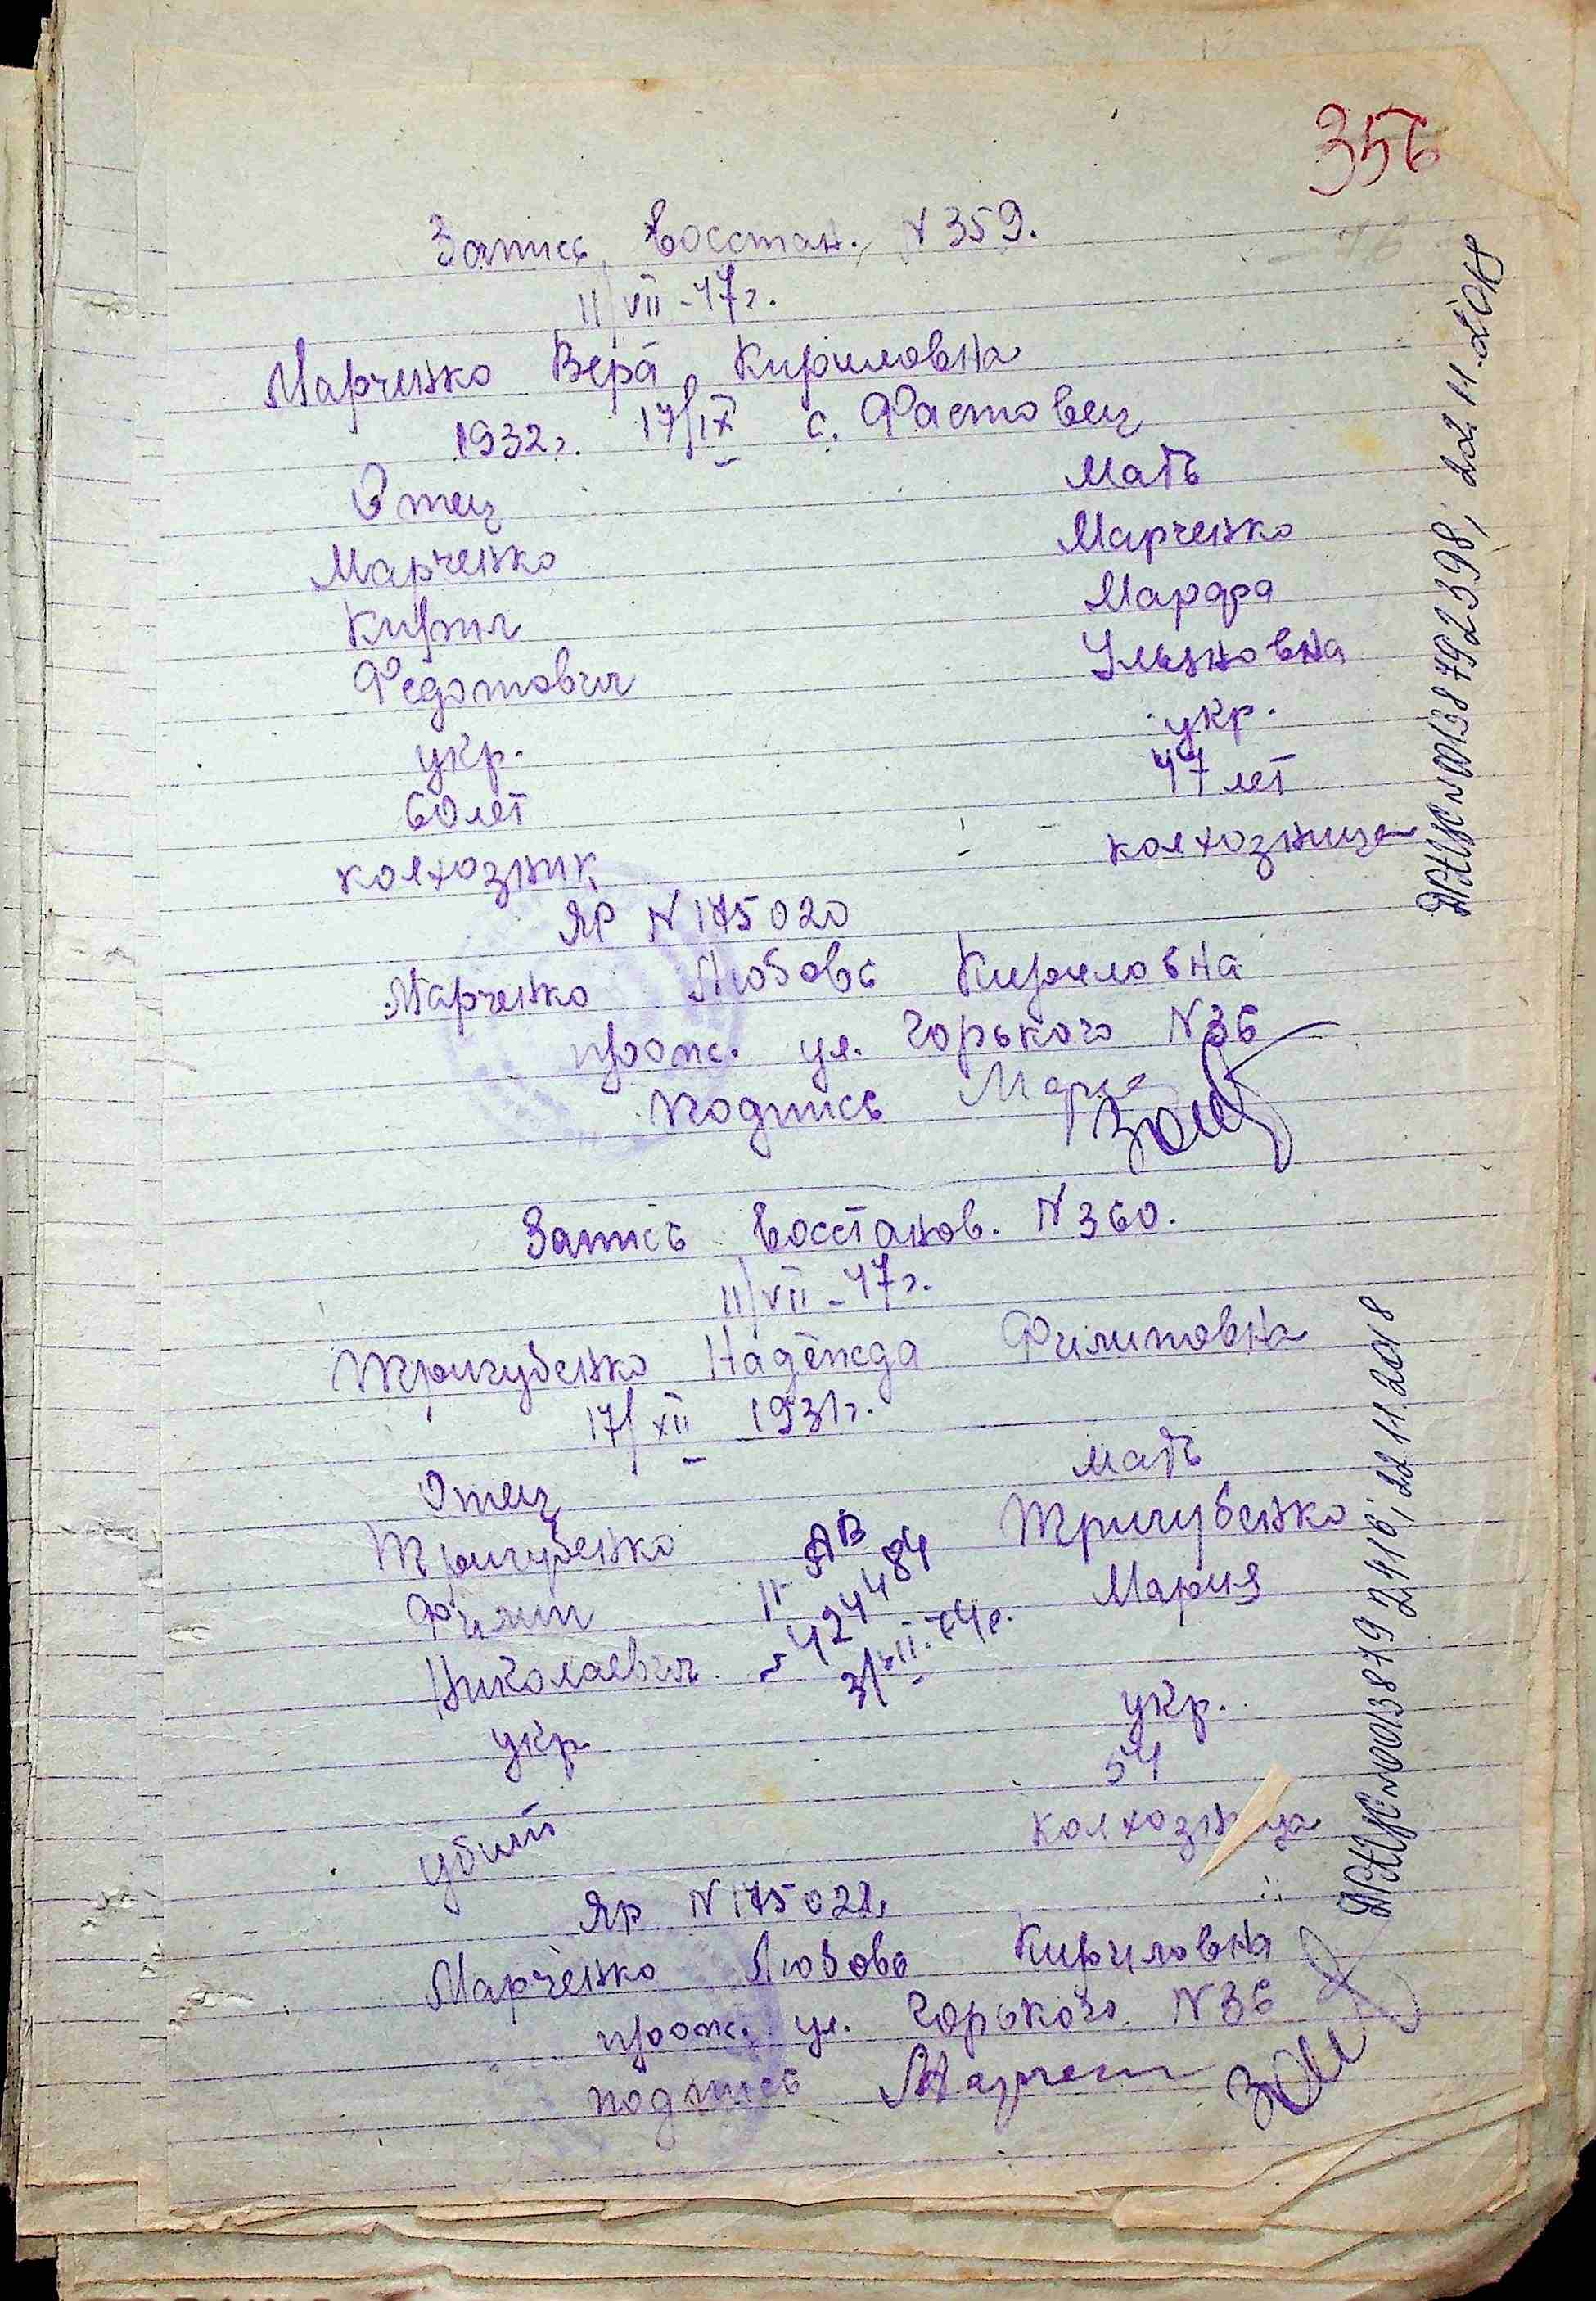 356
Запись восстан. N 359.
11/VII-47г.
Марченко Вера Кириловна
1932г. 17/IX с. Фастовец
Отец Мать
Марченко Марченко
Кирил Марфа
Федотович Ульяновна
укр. укр.
60 лет 47 лет
колхозник колхозница
ЯР N 175020
Марченко Любовь Кириловна
прож. ул. Горького N 36
подпись Марче
Запись восстанов. N 360.
11/VII-47г.
Тригубенко Надежда Филиповна
17/XII 1931г.
Отец мать
Тригубенко Тригубенко
Филип Мария
Николаевич
укр. укр.
54
убит колхозница
II-АВ
424484
3/VII-74г.
Яр N 175021
Марченко Любовь Кириловна
прож. ул. Горького N 36
подпись Марченко
ДРАЦС №00138792398; 22.11.2018
ДРАЦС №00138792416; 22.11.2018